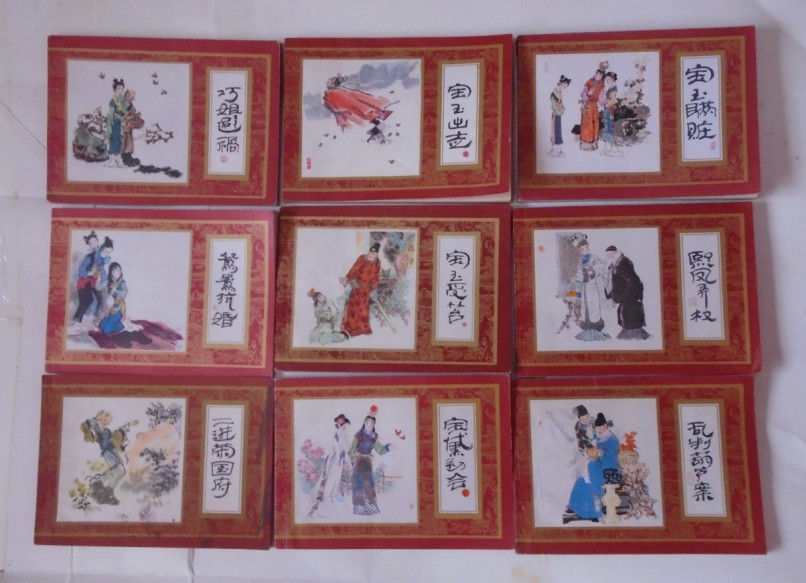 巧姐避祸
宝玉出走
宝玉瞒赃
鸳鸯抗婚
宝玉受笞
熙凤弄权
二进荣国府
宝黛初会
乱判葫芦案